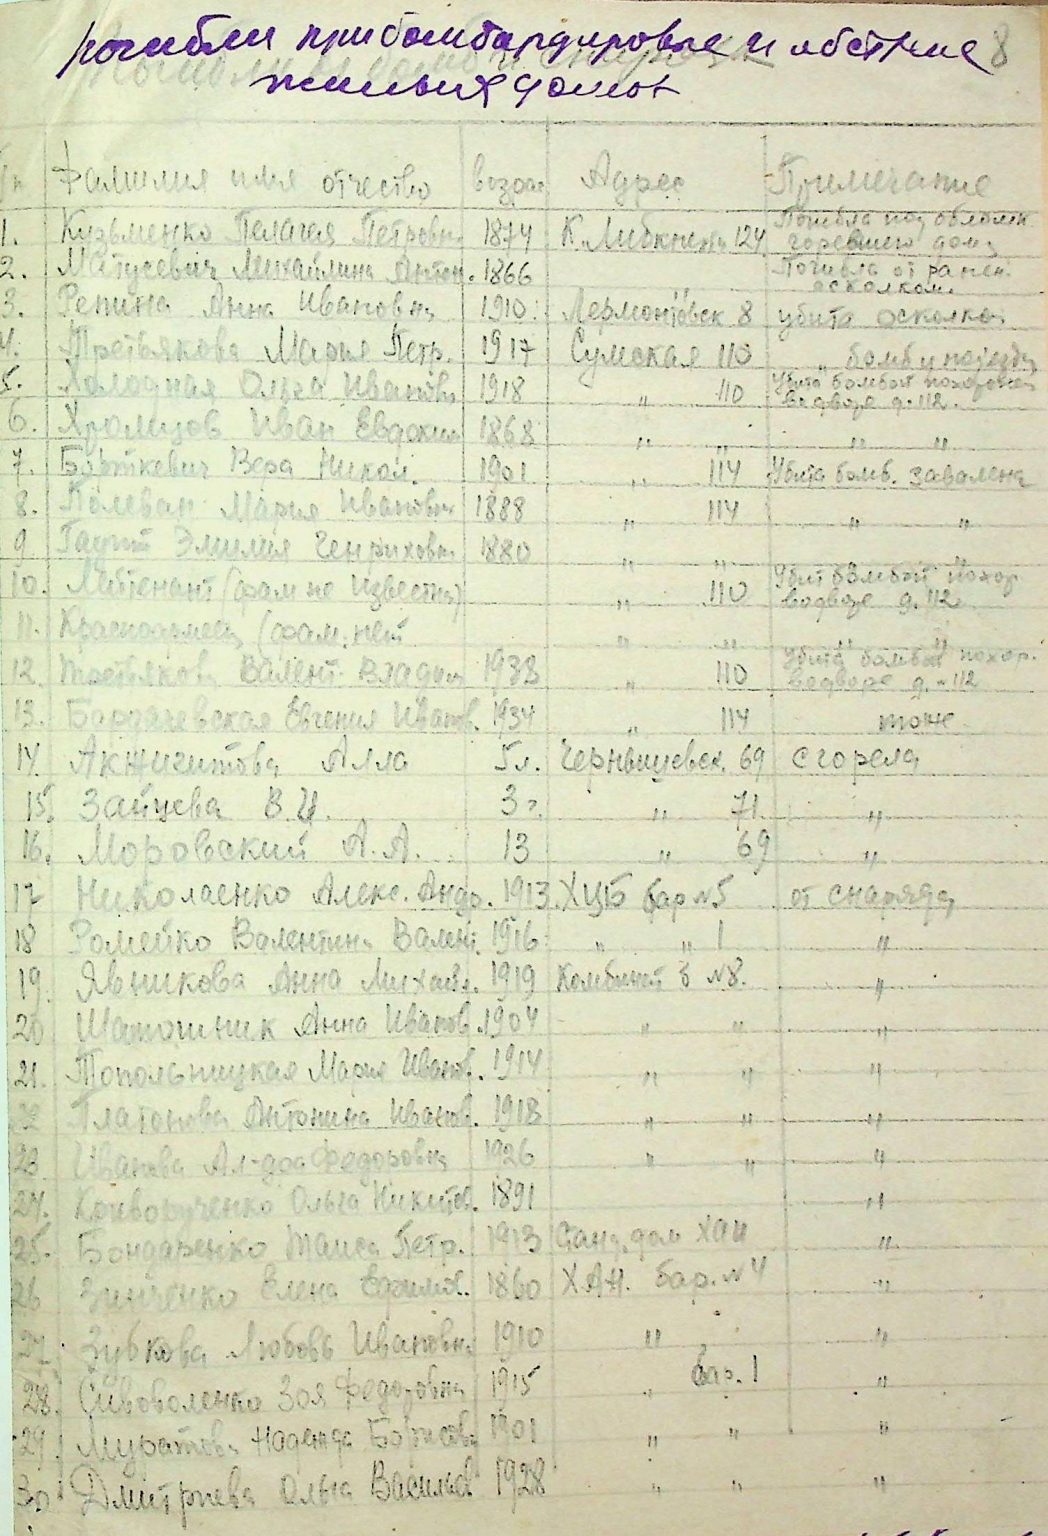 погибли при бомбардировке и обстреле 8
жилых домов
Фамилия имя отчество возрас Адрес Примечание
1. Кузьменко Пелагея Петровн 1874 К. Либкнехта 124 Погибла под облом. горевшего дома
2. Матусевич Михайлина Антон. 1866 " Погибла от ранен. осколком
3. Репина Анна Ивановна 1910 Лермонтовск 8 убита осколком
4. Третьякова Мария Петр. 1917 Сумская 110 " бомб у подезда
5. Холодная Ольга Ивановн 1918 " 110 Убита бомбой похоронен во дворе д. 112.
6. Хромцов Иван Евдоким 1868 " " " "
7. Борткевич Вера Никол. 1901 " 114 Убита бомб. завалена
8. Полеван Мария Ивановн 1888 " 114 " "
9 Гаупт Эмилия Генриховн 1880 " " "
10. Лейтенант (фам не известна) " 110 Убит бомбой похор во дворе д. 112
11. Красноармеец (фам. нет " " " "
12. Третьякова Валент. Владим 1938 " 110 Убита бомбой похор. во дворе д. 112
13. Евгения Иванов. 1934 " 114 тоже
14. Акжигитова Алла 5 л. Чернышевск. 69 сгорела
15. Зайцева В. И. 3 г. " 71 "
16. Моровский А. А. 13 " 69 "
17 Николаенко Алекс. Андр. 1913 ХЦБ бар №5 от снаряда
18 Ромейко Валентина Валент. 1916 " " 1 "
19. Явникова Анна Михайл. 1919 Комбинат б №8. "
20 Шапошник Анна Иванов. 1904 " " "
21. Топольницкая Мария Иванов. 1914 " " "
22 Платонова Антонина Иванов. 1918 " " "
23. Иванова Ал-дра Федоровна 1926 " " "
24. Криворученко Ольга Никитов. 1891 "
25. Бондаренко Таиса Петр. 1913 Санд. дом ХАИ "
26 Зинченко Елена Ефимов. 1860 Х.АИ. бар. №4 "
27. Зубкова Любовь Ивановна 1910 " "
28. Сивоволенко Зоя Федоровна 1915 " бар. 1 "
29. Муратова Надежда Борисовн 1901 " " "
30 Дмитриева Ольга Васильев 1928 " " "